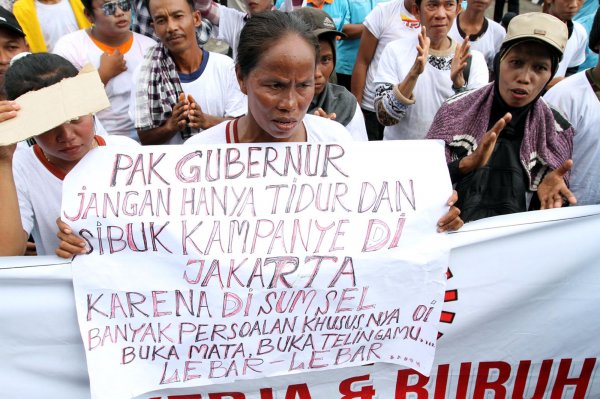 PAK GUBERNUR
JANGAN HANYA TIDUR DAN
SIBUK KAMPANYE DI
JAKARTA
KARENA DI SUMSEL
BANYAK PERSOALAN KHUSUS.NYA DI
... BUKA MATA, BUKA TELINGAMU....
LEBAR-LEBAR.....
& BURUH